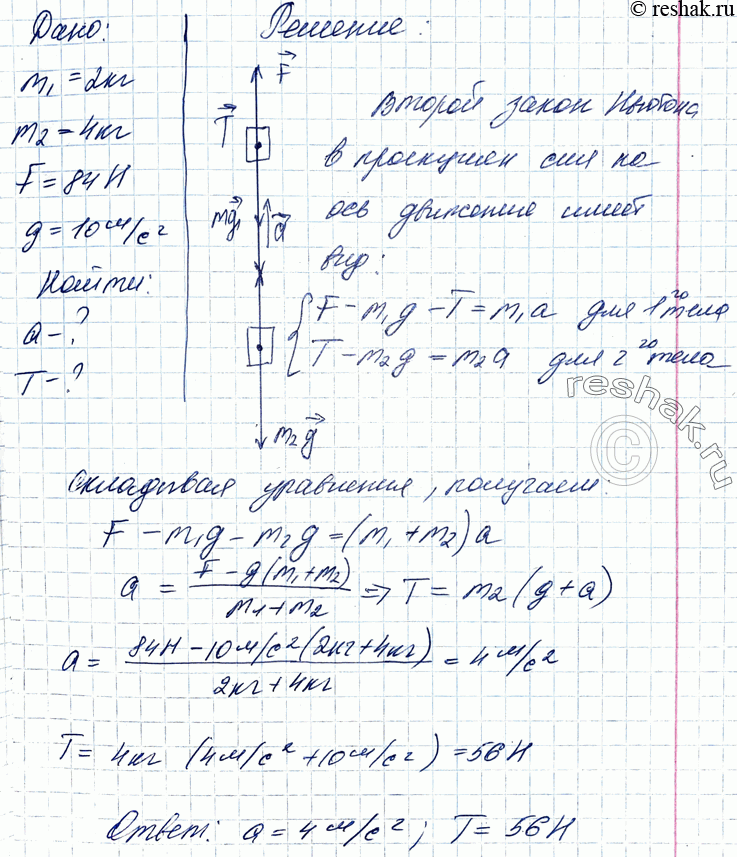 © reshak.ru
Дано:
m₁ = 2кг
m₂ = 4кг
F = 84Н
g = 10м/с²
Найти:
a - ?
T - ?
Решение:
F⃗
T⃗
mg⃗₁
a⃗
m₂g⃗
Второй закон Ньютона
в проекциях сил на
ось движение имеет
вид:
{ F - m₁g - T = m₁a для 1го тела
T - m₂g = m₂a для 2го тела
reshak.ru
©
Складывая уравнения, получаем:
F - m₁g - m₂g = (m₁ + m₂)a
a = (F - g(m₁+m₂))/(m₁+m₂) ⇒ T = m₂(g + a)
a = (84Н - 10м/с²(2кг+4кг))/(2кг+4кг) = 4м/с²
T = 4кг (4м/с² + 10м/с²) = 56Н
Ответ: a = 4м/с²; T = 56Н